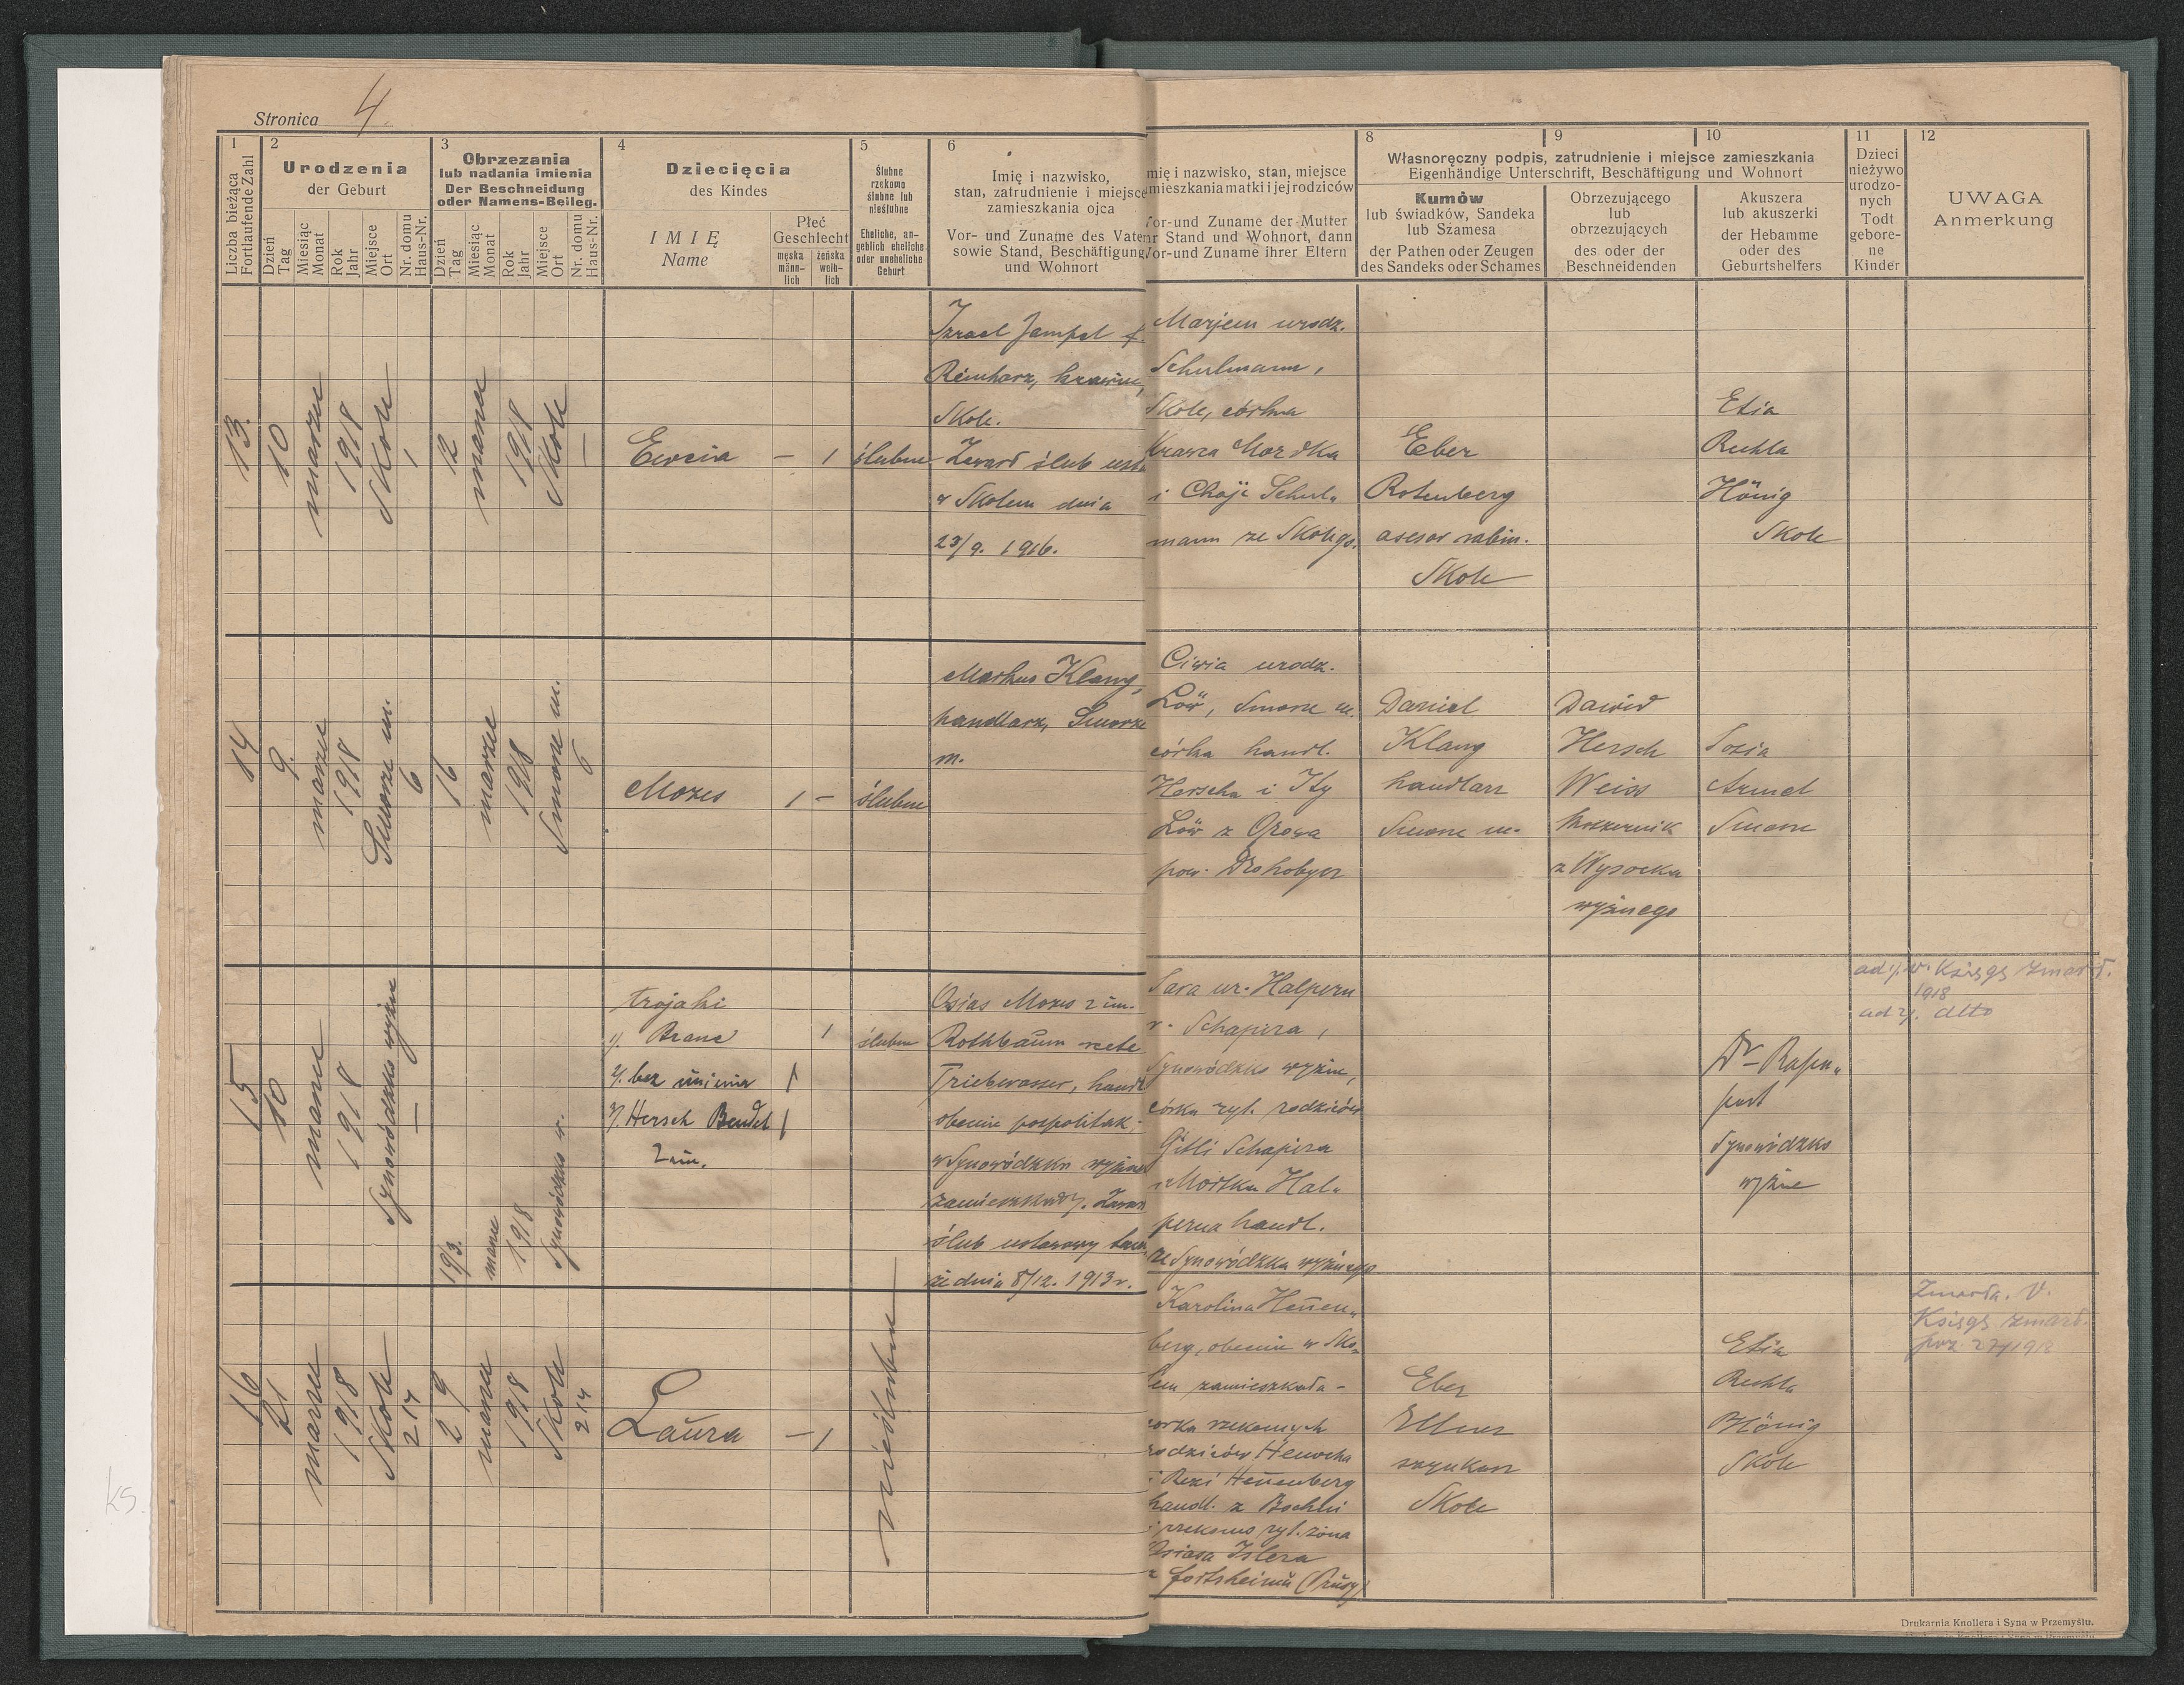 Stronica 4.
1
Liczba bieżąca
Fortlaufende Zahl
2
Urodzenia
der Geburt
Dzień
Tag
Miesiąc
Monat
Rok
Jahr
Miejsce
Ort
Nr. domu
Haus-Nr.
3
Obrzezania
lub nadania imienia
Der Beschneidung
oder Namens-Beileg.
Dzień
Tag
Miesiąc
Monat
Rok
Jahr
Miejsce
Ort
Nr. domu
Haus-Nr.
4
Dziecięcia
des Kindes
IMIĘ
Name
Płeć
Geschlecht
męska
männ-
lich
żeńska
weib-
lich
5
Ślubne
rzekomo
ślubne lub
nieślubne
Eheliche, an-
geblich eheliche
oder uneheliche
Geburt
6
Imię i nazwisko,
stan, zatrudnienie i miejsce
zamieszkania ojca
Vor- und Zuname des Vaters
sowie Stand, Beschäftigung
und Wohnort
mię i nazwisko, stan, miejsce
mieszkania matki i jej rodziców
Vor-und Zuname der Mutter
r Stand und Wohnort, dann
Vor-und Zuname ihrer Eltern
8
9
10
Własnoręczny podpis, zatrudnienie i miejsce zamieszkania
Eigenhändige Unterschrift, Beschäftigung und Wohnort
Kumów
lub świadków, Sandeka
lub Szamesa
der Pathen oder Zeugen
des Sandeks oder Schames
Obrzezującego
lub
obrzezujących
des oder der
Beschneidenden
Akuszera
lub akuszerki
der Hebamme
oder des
Geburtshelfers
11
Dzieci
nieżywo
urodzo-
nych
Todt
gebore-
ne
Kinder
12
UWAGA
Anmerkung
13.
10
marzu
1918
Skole
1
12
marzu
1918
Skole
—
Ewcia
— 1
ślubne
Izrael Jampel f.
Reinharz, krawiec,
Skole.
Zawarł ślub
w Skolem dnia
23/9. 1916.
Marjem urodz.
Schulmann,
Skole, córka
krawca Mordka
i Chaje Schul-
mann ze Skolego.
Eber
Rotenberg
asesor rabin.
Skole
Etia
Rechla
Hönig
Skole
14
9.
marzu
1918
Smorze m.
6
16
marzu
1918
Smorze m.
6
Mozes
1 —
ślubne
Markus Klang,
handlarz, Smorze
m.
Ciwia urodz.
Löw, Smorze m.
córka handl.
Herscha i Ity
Löw z Orowa
pow. Drohobycz
Daniel
Klang
handlarz
Smorze m.
Dawid
Hersch
Weiss
z Wysocka
wyżnego
Sosia
Smorze
15
10
marzu
1918
Synowódzko wyżne
—
19/3.
marzu
1918
Synowódzko w.
trojaki
1/.
2/. bez imienia
3/. Hersch Bendet
2 im.
1
1
1
ślubne
Osias Mozes 2 im.
Rothbaum recte
Trieberwasser, handl
obecnie pospolitak;
w Synowódzku wyżnem
zamieszkały. Zawarł
ślub ustawowy tam
że dnia 8/12. 1913 r.
Sara ur. Halpern
r. Schapira,
Synowódzko wyżne,
córka ryt. rodziców
Gitli Schapira
i Mortka Hal-
perna handl.
ze Synowódzka wyżnego
Dr Rapa-
port
Synowódzko
wyżne
ad 1/. v. Księgę zmarł.
1918
ad 2/. dtto
16
21
marzu
1918
Skole
214
29
marzu
1918
Skole
214
Laura
— 1
nieślubne
Karolina Hennen-
berg, obecnie w Sko-
lem zamieszkała -
córka rzekomych
rodziców Henocha
i Rezi Hennenberg
handl. z Bochni
i rzekomo ryt. żona
Osiasa Islera
z Fortsheimu (Prusy)
Eber
Ellner
szynkarz
Skole
Etia
Rechla
Hönig
Skole
Zmarła. V.
Księgę zmarł.
poz. 27/1918
KS.
Drukarnia Knollera i Syna w Przemyślu.